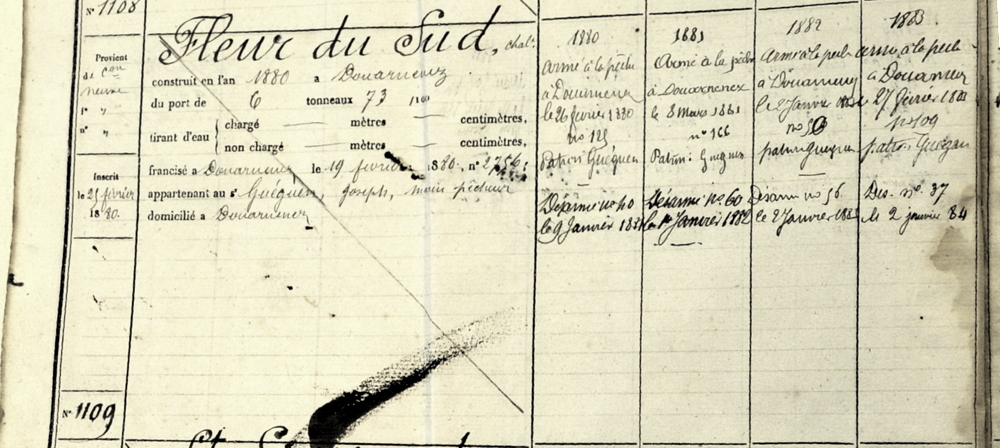 N° 1108
Provient
de con
neuve
n° "
Inscrit
le 21 février
1880.
Fleur du Sud, chal.
construit en l'an 1880 a Douarnenez
du port de 6 tonneaux 73 100
tirant d'eau { chargé mètres centimètres,
non chargé mètres centimètres,
francisé a Douarnenez le 19 février 1880, n° 2756;
appartenant au s. Guéguen, Joseph, marin pêcheur
domicilié a Douarnenez
1880
Armé à la pêche
à Douarnenez
le 26 février 1880
n° 125
Patron Guéguen
Désarmé n° 40
le 9 Janvier 1881
1881
Armé à la pêche
à Douarnenez
le 8 Mars 1881
n° 166
Patron: Guéguen
Désarmé n° 60
le 1er Janvier 1882
1882
Armé à la pêche
à Douarnenez
le 2 Janvier
patron Guéguen
Désarm n° 56
le 2 Janvier 188
1883
Armé à la pêche
à Douarnenez
le 27 février 188
n° 109
patron: Guéguen
Des. n° 37
le 2 janvier 84
N° 1109